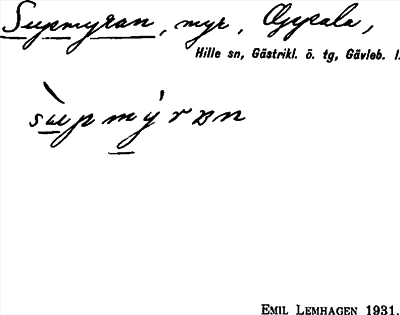 Supmyran, myr, Oppala,
Hille sn, Gästrikl. ö. tg, Gävleb. l.
sùpmýrɒn
EMIL LEMHAGEN 1931.